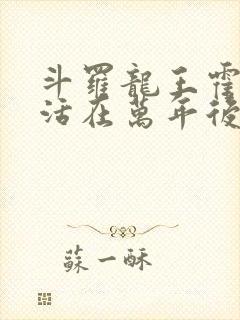 斗羅龍王霍
活在萬年後
蘇一酥